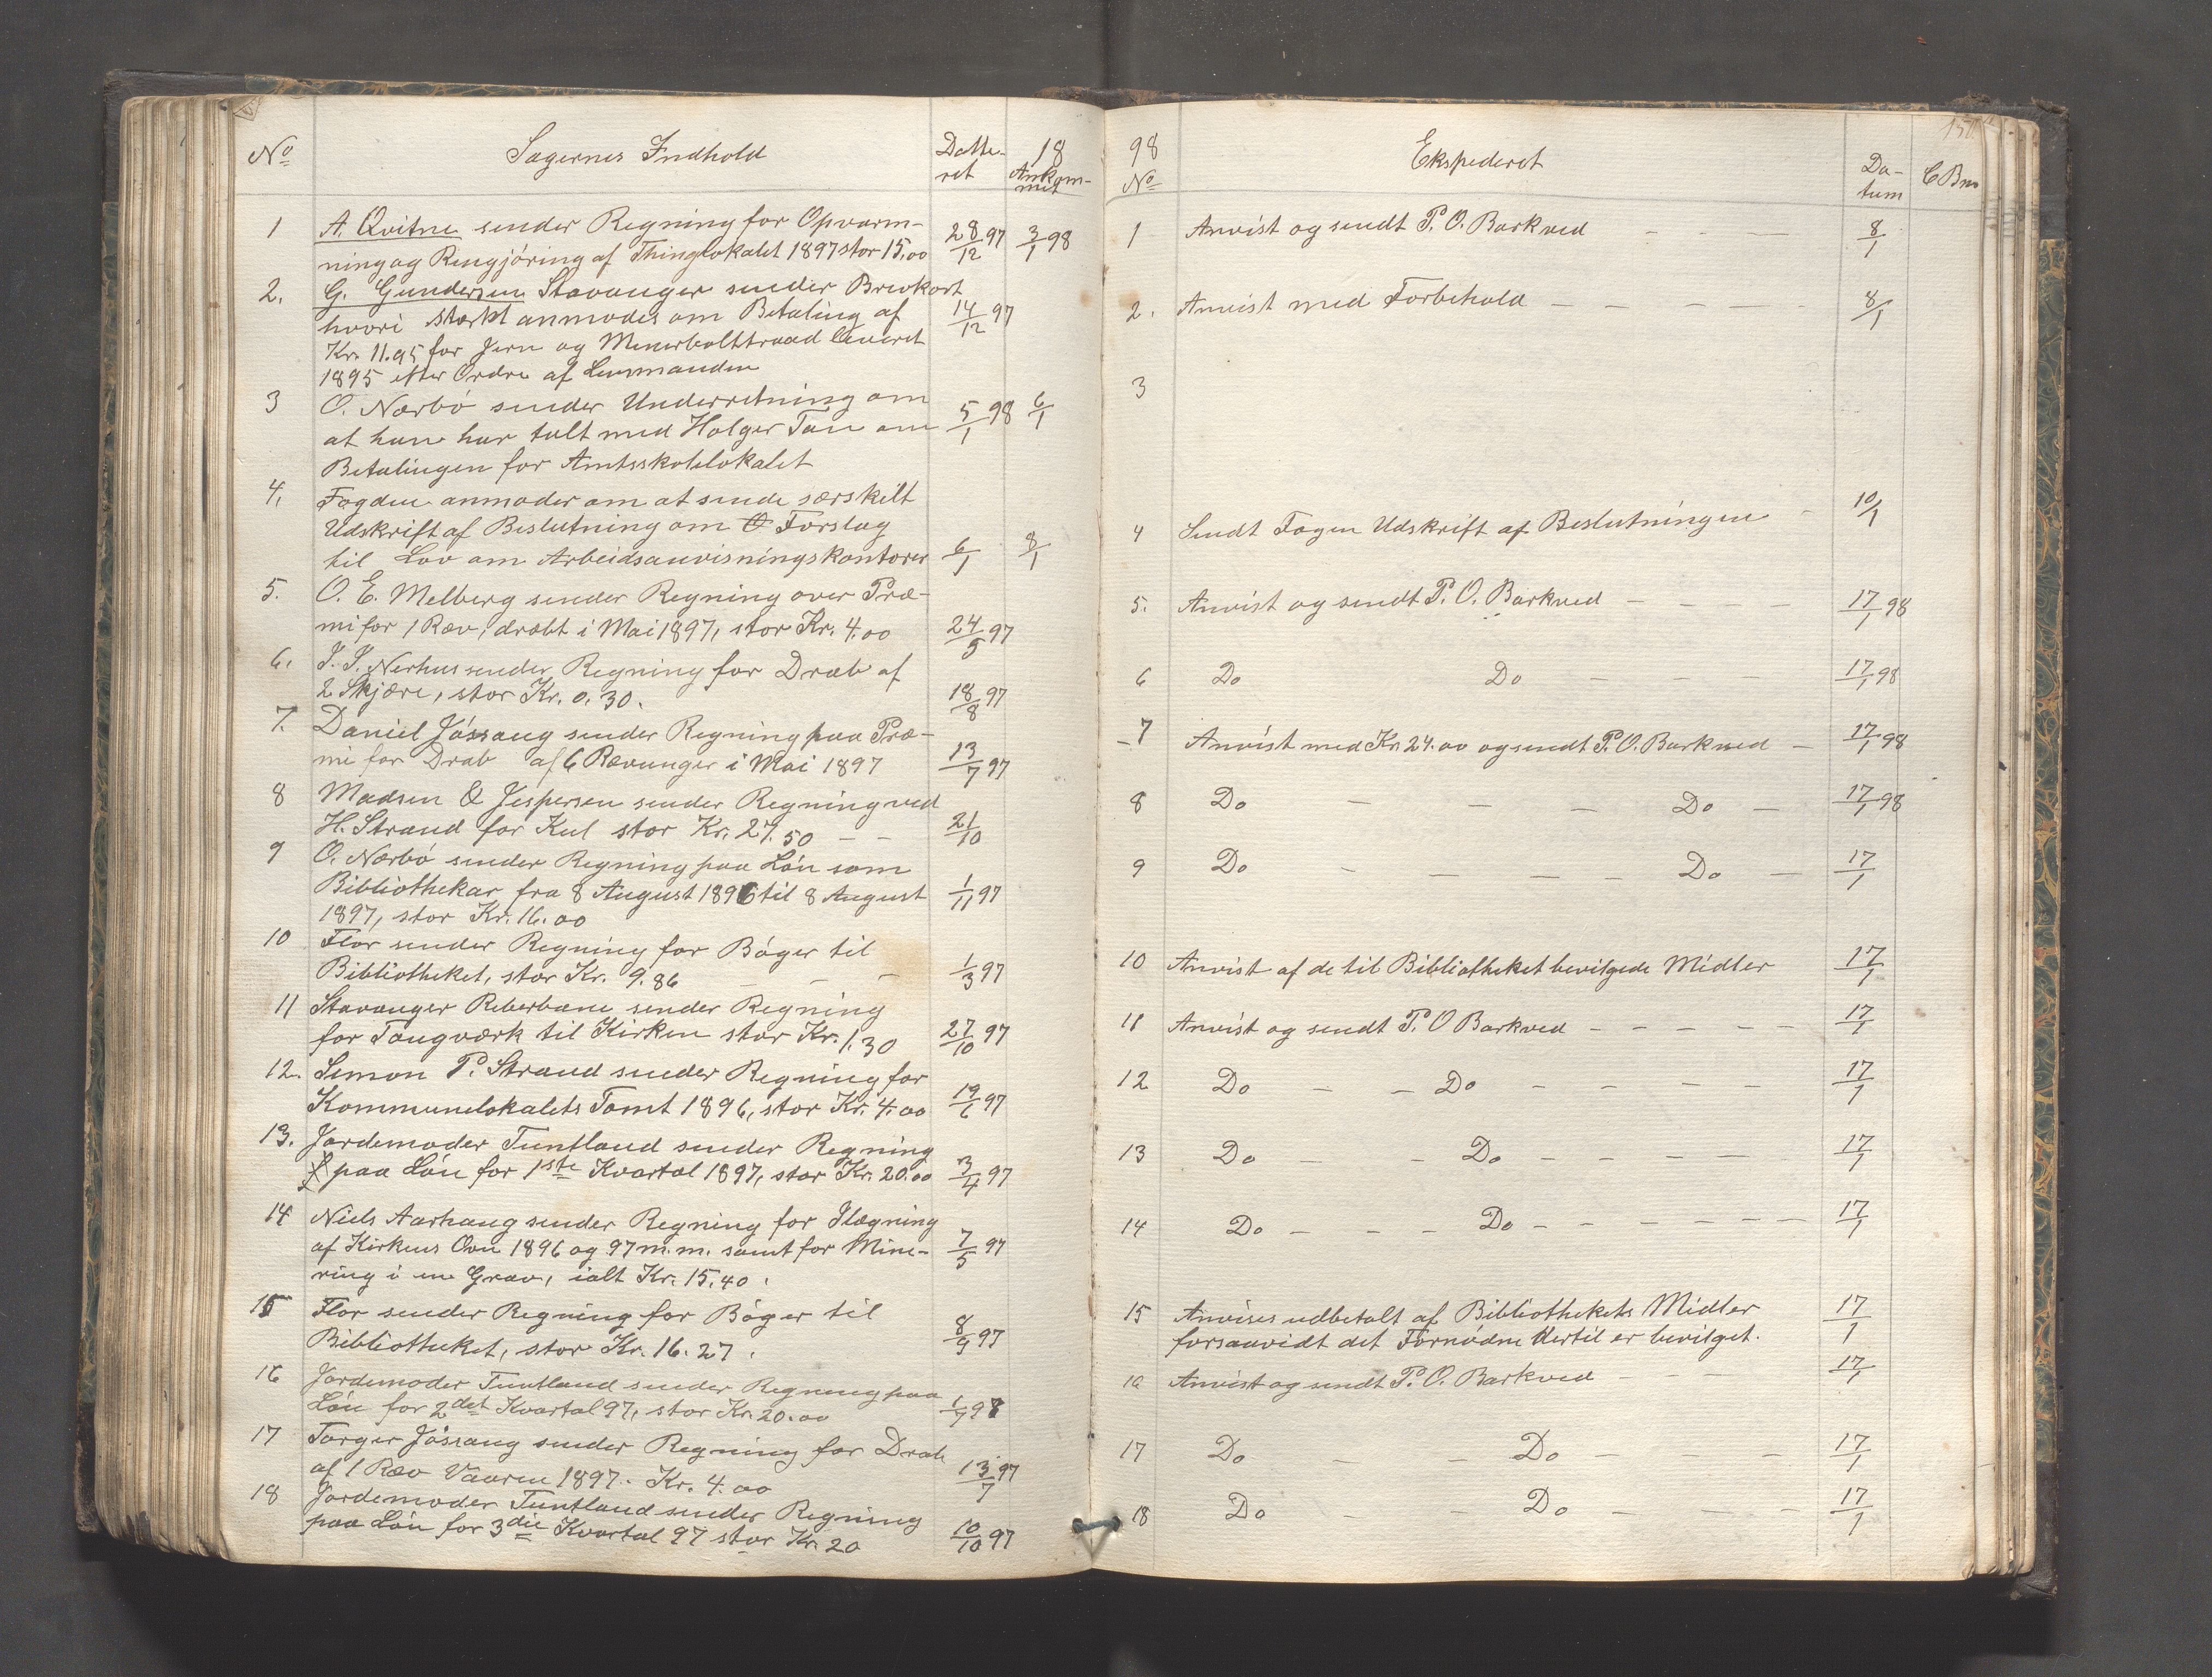 No Sagernes Indhold Datteret 18 Ankommet
1 A. Qvitne sender Regning for Opvarm- 28/12 97 3/1 98
ning og Rengjöring af Thinglokalet 1897 stor 15,00
2. G. Gundersen Stavanger sender Brevkort
hvori stærkt anmodes om Betaling af 14/12 97
Kr. 11.95 for Jern og Minerbolttraad leveret
1895 efter Ordre af Lensmanden
3 O. Nærbö sender Underretning om
at han har talt med Holger Tau om 5/1 98 6/1
Betalingen for Amtsskolelokalet
4. Fogden anmoder om at sende særskilt
Udskrift af Beslutning om Forslag
til Lov om Arbeidsanvisningskontorer 6/1 8/1
5. O. E. Melberg sender Regning over Præ-
mi for 1 Ræv, dræbt i Mai 1897, stor Kr. 4.00 24/5 97
6. I. I. Nerhus sender Regning for Drab af
2 Skjære, stor Kr. 0.30. 18/8 97
7. Daniel Jössang sender Regning paa Præ-
mi for Drab af 6 Rævunger i Mai 1897 13/7 97
8 Madsen & Jespersen sender Regning ved
H. Strand for Kul stor Kr. 27.50 — — 21/10
9 O. Nærbö sender Regning paa Lön som
Bibliothekar fra 8 August 1896 til 8 August 1/11 97
1897, stor Kr. 16.00
10 Flor sender Regning for Böger til
Bibliotheket, stor Kr. 9.86 — — — 1/3 97
11 Stavanger Reberbane sender Regning
for Tougværk til Kirken stor Kr. 1.30 27/10 97
12. Simon P. Strand sender Regning for
Kommunelokalets Tomt 1896, stor Kr. 4.00 19/6 97
13. Jordemoder Tuntland sender Regning
paa Lön for 1ste Kvartal 1897, stor Kr. 20.00 3/4 97
14 Niels Aarhaug sender Regning for Ilægning
af Kirkens Ovn 1896 og 97 m.m. samt for Mine- 7/5 97
ring i en Grav, ialt Kr. 15.40.
15 Flor sender Regning for Böger til
Bibliotheket, stor Kr. 16.27. 8/9 97
16 Jordemoder Tuntland sender Regning paa
Lön for 2det Kvartal 97, stor Kr. 20.00 1/7 97
17 Torger Jössang sender Regning for Drab
af 1 Ræv Vaaren 1897. Kr. 4.00 13/7 97
18 Jordemoder Tuntland sender Regning
paa Lön for 3die Kvartal 97 stor Kr. 20 10/10 97
98 No Ekspederet Datum C Bm
1 Anvist og sendt P. O. Barkved — — — 8/1
2. Anvist med Forbehold — — — — 8/1
3
4 Sendt Fogen Udskrift af Beslutningen - 10/1
5. Anvist og sendt P. O. Barkved — — — — 17/1 98
6 Do Do — — — 17/1 98
7 Anvist med Kr. 24.00 og sendt P. O. Barkved — 17/1 98
8 Do — — — Do — 17/1 98
9 Do — — — — Do — 17/1
10 Anvist af de til Bibliotheket bevilgede Midler 17/1
11 Anvist og sendt P. O Barkved — — — — — 17/1
12 Do — — Do — — — — 17/1
13 Do — — Do — — — — 17/1
14 Do — — — Do — — — — — — 17/1
15 Anvises udbetalt af Bibliothekets Midler 17/1
forsaavidt det Fornödne dertil er bevilget.
16 Anvist og sendt P. O. Barkved — — — 17/1
17 Do — — Do — — — 17/1
18 Do — — Do — — — 17/1